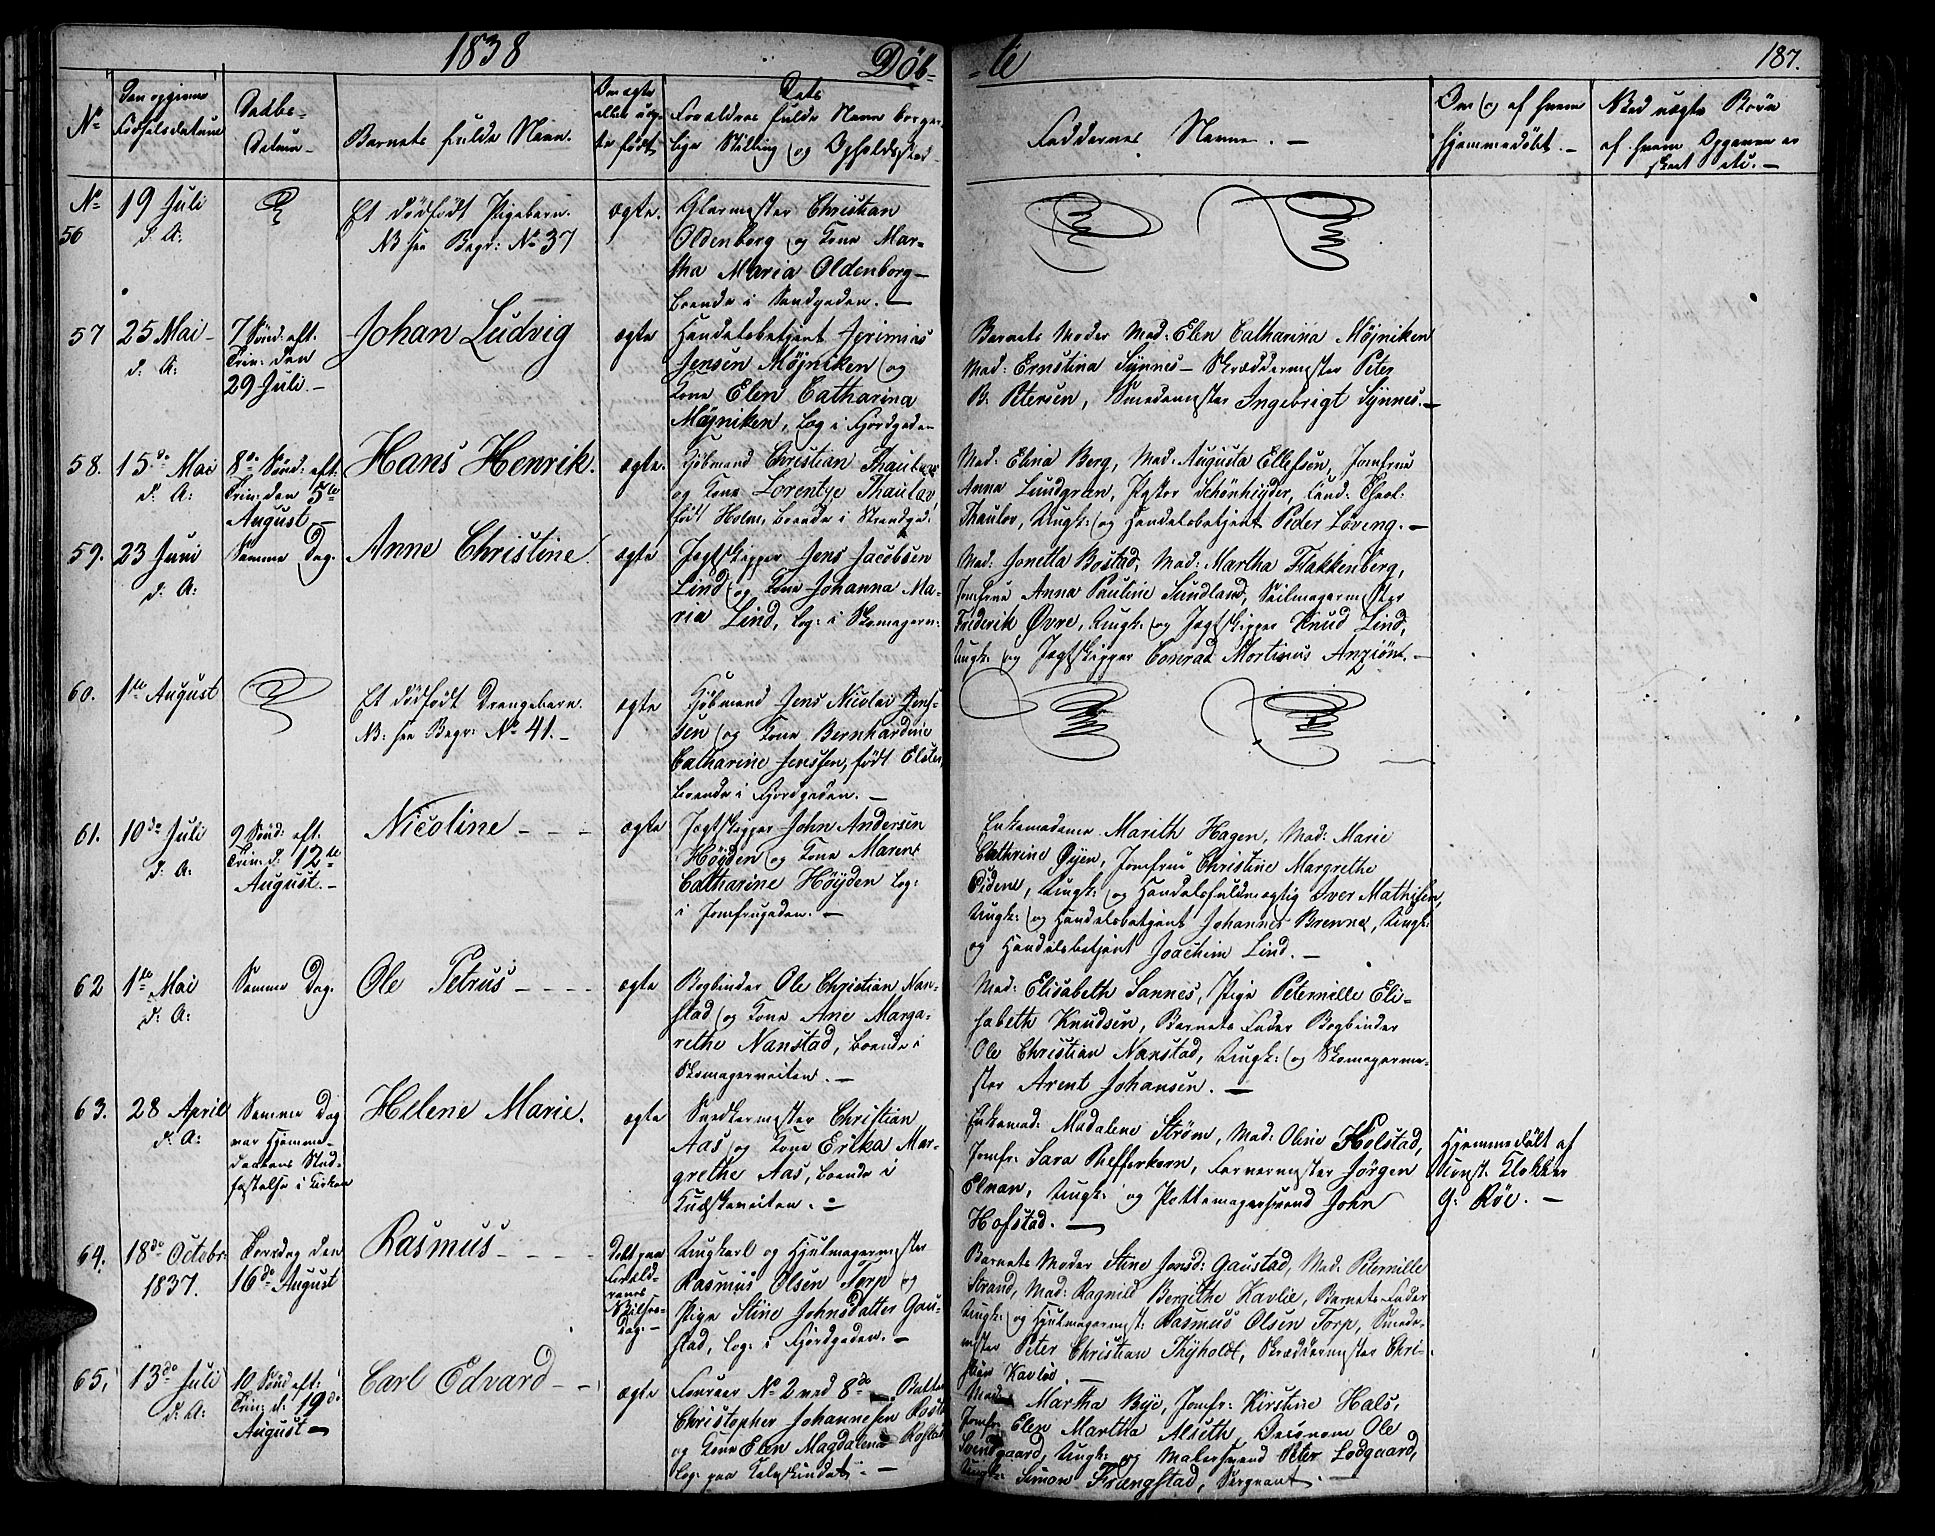 1838
Döb-
-te
187.
No
Den opgivne
Födselsdatum
Daabs-
Datum
Barnets fulde Navn.
Om ægte
eller uæg-
te født
Dets
Forældres fulde Navn borger-
lige Stilling og Opholdssted
Faddernes Navne. —
Om og af hvem
hjemmedöbt. —
Ved uægte Börn
af hvem Opgaven er
skeet etc. —
No
56
19 Juli
d: A:
Et dödfödt Pigebarn.
NB see Begr: No 37
ægte.
Glarmester Christian
Oldenborg og Kone Mar-
tha Maria Oldenborg —
boende i Sandgaden. —
57
25 Mai
d. A:
7 Sönd: eft:
Trin: den
29 Juli. —
Johan Ludvig
ægte
Handelsbetjent
Jensen Möjniken og
Kone Elen Catharina
Möjniken, log i Fjordgaden
Barnets Moder Mad: Elen Catharina Möjniken
Mad: Ernstina Synnes — Skræddermester Peter
B. Petersen, Smedemester Ingebrigt Synnes. —
58.
15de Mai
d. A:
8de Sönd: eft:
Trin: den 5te
August —
Hans Henrik.
ægte.
Kjöbmand Christian Thaulow
og Kone Lorentze Thaulow
födt Holm, boende i Strandgd:
Mad: Elina Berg, Mad: Augusta Ellefsen, Jomfrue
Anna Lundgreen, Pastor Schönheyder, Cand: Theol:
Thaulov, Ungk: og Handelsbetjent Peder Löveng. —
59.
23 Juni
d. A:
Samme Dag.
Anne Christine
ægte
Jagtskipper Jens Jacobsen
Lind og Kone Johanna Ma-
ria Lind, log: i Skomagerv:
Mad: Jonetta Bostad, Mad: Martha Flakkenberg,
Jomfrue Anna Pauline Sundland, Seilmagermester
Frederik Øvre, Ungk: og Jagtskipper Knud Lind,
Ungk: og Jagtskipper Conrad Mortinus Anzión. —
60.
1te August
Et dödfödt Drengebarn.
NB: see Begr: No 41. —
ægte
Kjöbmand Jens Nicolai Jens-
sen og Kone Bernhardine
Catharine Jenssen, födt Elster,
boende i Fjordgaden. —
61.
10de Juli
d: A:
9 Sönd: eft:
Trin: d: 12te
August. —
Nicoline
ægte
Jagtskipper John Andersen
Höyden og Kone Maren
Catharine Höyden log:
i Jomfrugaden. —
Enkemadame Marith Hagen, Mad: Marie
Cathrine Øyen, Jomfrue Christine Margrethe
Eidene, Ungk: og Handelsfuldmægtig Iver Mathisen,
Ungk: og Handelsbetjent Johannes Brenne, Ungk:
og Handelsbetjent Joachim Lind. —
62
1te Mai
d: A:
Samme Dag.
Ole Petrus
ægte
Bogbinder Ole Christian Nan-
stad og Kone Ane Marga-
rethe Nanstad, boende i
Skomagerveiten. —
Mad: Elisabeth Sannes, Pige Peternille Eli-
sabeth Knudsen, Barnets Fader Bogbinder
Ole Christian Nanstad, Ungk: og Skomagerme-
ster Arent Johansen. —
63.
28 April
d. A:
Samme Dag
var Hjemme-
daabens Stad-
fæstelse i Kirken
Helene Marie.
ægte
Snedkermester Christian
Aas og Kone Erika Mar-
grethe Aas, boende i
Kudskeveiten. —
Enkemad: Madalene Ström, Mad: Oline Holstad,
Jomfr: Sara Pfefferkorn, Farvermester Jörgen
Elnan, Ungk: og Pottemagersvend John
Hofstad. —
Hjemmedöbt af
Const. Klokker
G: Röe. —
64.
18de Octobr:
1837.
Torsdag den
16de August
Rasmus
Döbt paa
Foræld-
renes
Bilfæ
Dag. —
Ungkarl og Hjulmagermester
Rasmus Olsen Torp og
Pige Stine Johnsdatter Gau-
stad, log: i Fjordgaden. —
Barnets Moder Stine Jonsd: Gaustad, Mad: Peternille
Strand, Mad: Ragnild Bergithe Kavlie, Barnets Fader
Ungk: og Hjulmagermst: Rasmus Olsen Torp, Smede-
mester Peter Christian Thyholdt, Skræddermester Chri-
stian Kavlie. —
65.
13de Juli
d: A:
10 Sönd eft:
Trin: d. 19de
August —
Carl Edvard
ægte
Foureer No 2 ved 8de Batt:
Christopher Johannesen
og Kone Elen Magdalena
log: paa Kalvskindet. —
Mad: Martha Bye, Jomfr: Kirstine Hals,
Jomfr: Elen Martha Alseth, Oeconom Ole
Svendgaard, Ungk: og Malersvend Peter Lodgaard,
Ungk: Simon Frængstad, Sergeant. —